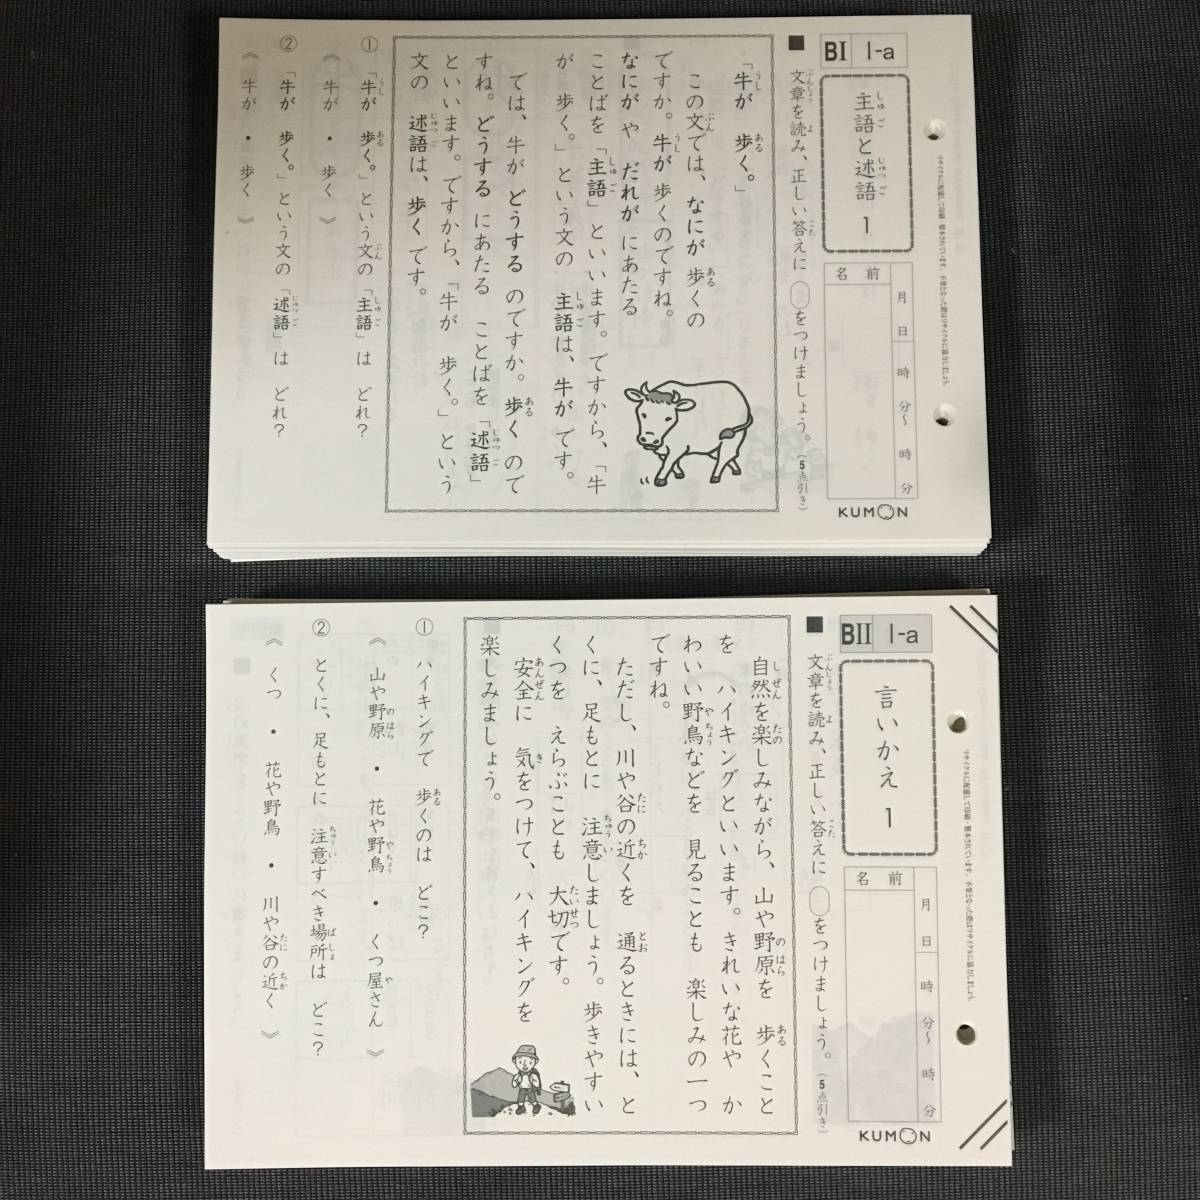 BI 1-a
主語と述語 1
名前
月 日
時 分〜 時 分
KUMON
リサイクルに配慮して印刷・製本されています。不要となった際はリサイクルに協力しましょう。
■ 文章を読み、正しい答えに ○をつけましょう。(5点引き)
「牛が 歩く。」
この文では、なにが 歩くの
ですか。牛が 歩くのですね。
なにが や だれが にあたる
ことばを「主語」といいます。ですから、「牛
が 歩く。」という文の 主語は、牛が です。
では、牛が どうする のですか。歩く ので
すね。どうする にあたる ことばを「述語」
といいます。ですから、「牛が 歩く。」という
文の 述語は、歩く です。
① 「牛が 歩く。」という文の「主語」は どれ?
《 牛が ・ 歩く 》
② 「牛が 歩く。」という文の「述語」は どれ?
《 牛が ・ 歩く 》
BII 1-a
言いかえ 1
名前
月 日
時 分〜 時 分
KUMON
リサイクルに配慮して印刷・製本されています。不要となった際はリサイクルに協力しましょう。
■ 文章を読み、正しい答えに ○をつけましょう。(5点引き)
自然を楽しみながら、山や野原を 歩くこと
を ハイキングといいます。きれいな花や か
わいい野鳥などを 見ることも 楽しみの一つ
ですね。
ただし、川や谷の近くを 通るときには、と
くに、足もとに 注意しましょう。歩きやすい
くつを えらぶことも 大切です。
安全に 気をつけて、ハイキングを
楽しみましょう。
① ハイキングで 歩くのは どこ?
《 山や野原 ・ 花や野鳥 ・ くつ屋さん 》
② とくに、足もとに 注意すべき場所は どこ?
《 くつ ・ 花や野鳥 ・ 川や谷の近く 》